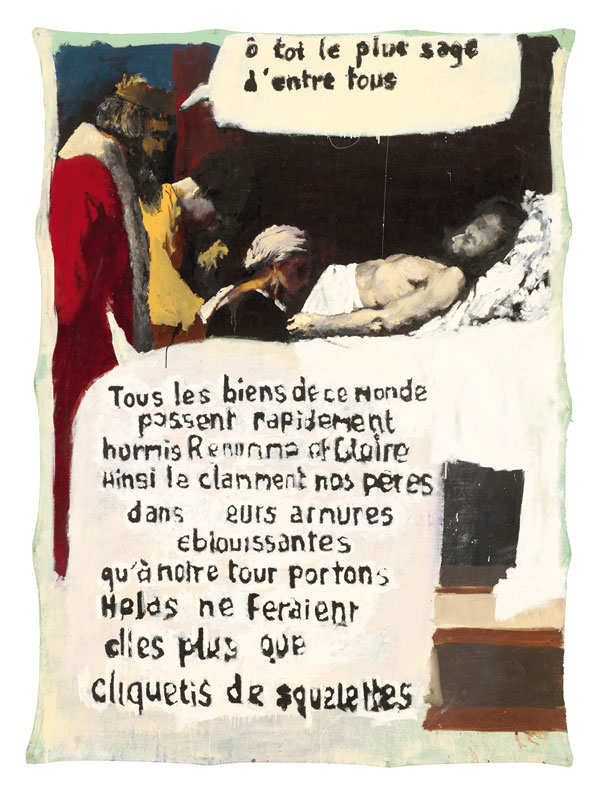 ô toi le plus sage
d'entre tous
Tous les biens de ce monde
passent rapidement
hormis Renomma et Gloire
Ainsi le clamment nos pères
dans eurs armures
eblouissantes
qu'à notre tour portons
Helas ne feraient
elles plus que
cliquetis de squelettes